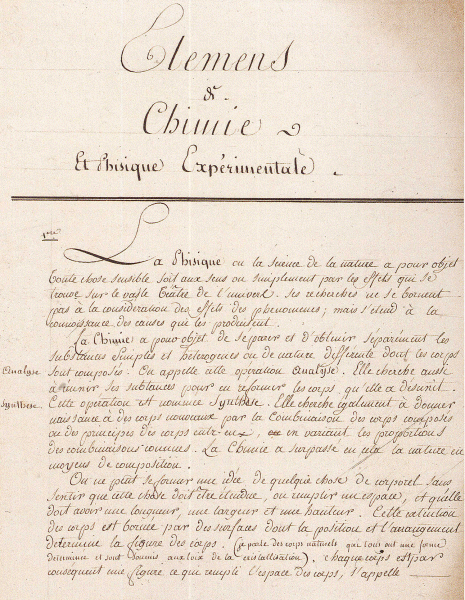 Elemens
de
Chimie
Et Phisique Expérimentale
La Phisique ou la science de la nature a pour objet
toute chose sensible soit aux sens ou simplement par les effets qui se
trouve sur le vaste téâtre de l'univers. Ses recherches ne se bornent
pas à la considération des effets des phenomenes; mais s'étend à la
connoissance des causes qui les produisent.
La Chimie a pour objet de séparer et d'obtenir séparément les
substances simples et héterogenes ou de nature differente dont les corps
sont composés. On appelle cette opération analyse. Elle cherche aussi
Analyse
à réunir ses substances pour en reformer les corps qu'elle a desunit.
Cette opération est nommée Synthèse. Elle cherche également à donner
Synthese.
naissance à des corps nouveaux par la Combinaison des corps composés
ou des principes des corps entr'eux, en variant les proportions
des combinaisons connues. La Chimie a surpassé en cela la nature en
moyens de composition.
On ne peut se former une idée de quelque chose de corporel sans
sentir que cette chose doit être étendue, ou remplir un espace, et qu'elle
doit avoir une longueur, une largeur et une hauteur. Cette extension
des corps est bornée par des surfaces dont la position et l'arrangement
détermine la figure des corps. (je parle des corps naturels qui tous ont une forme
déterminée et sont soumis aux loix de la cristallisation). chaque corps est par
consequent une figure ce qui remplit l'espace des corps, s'appelle